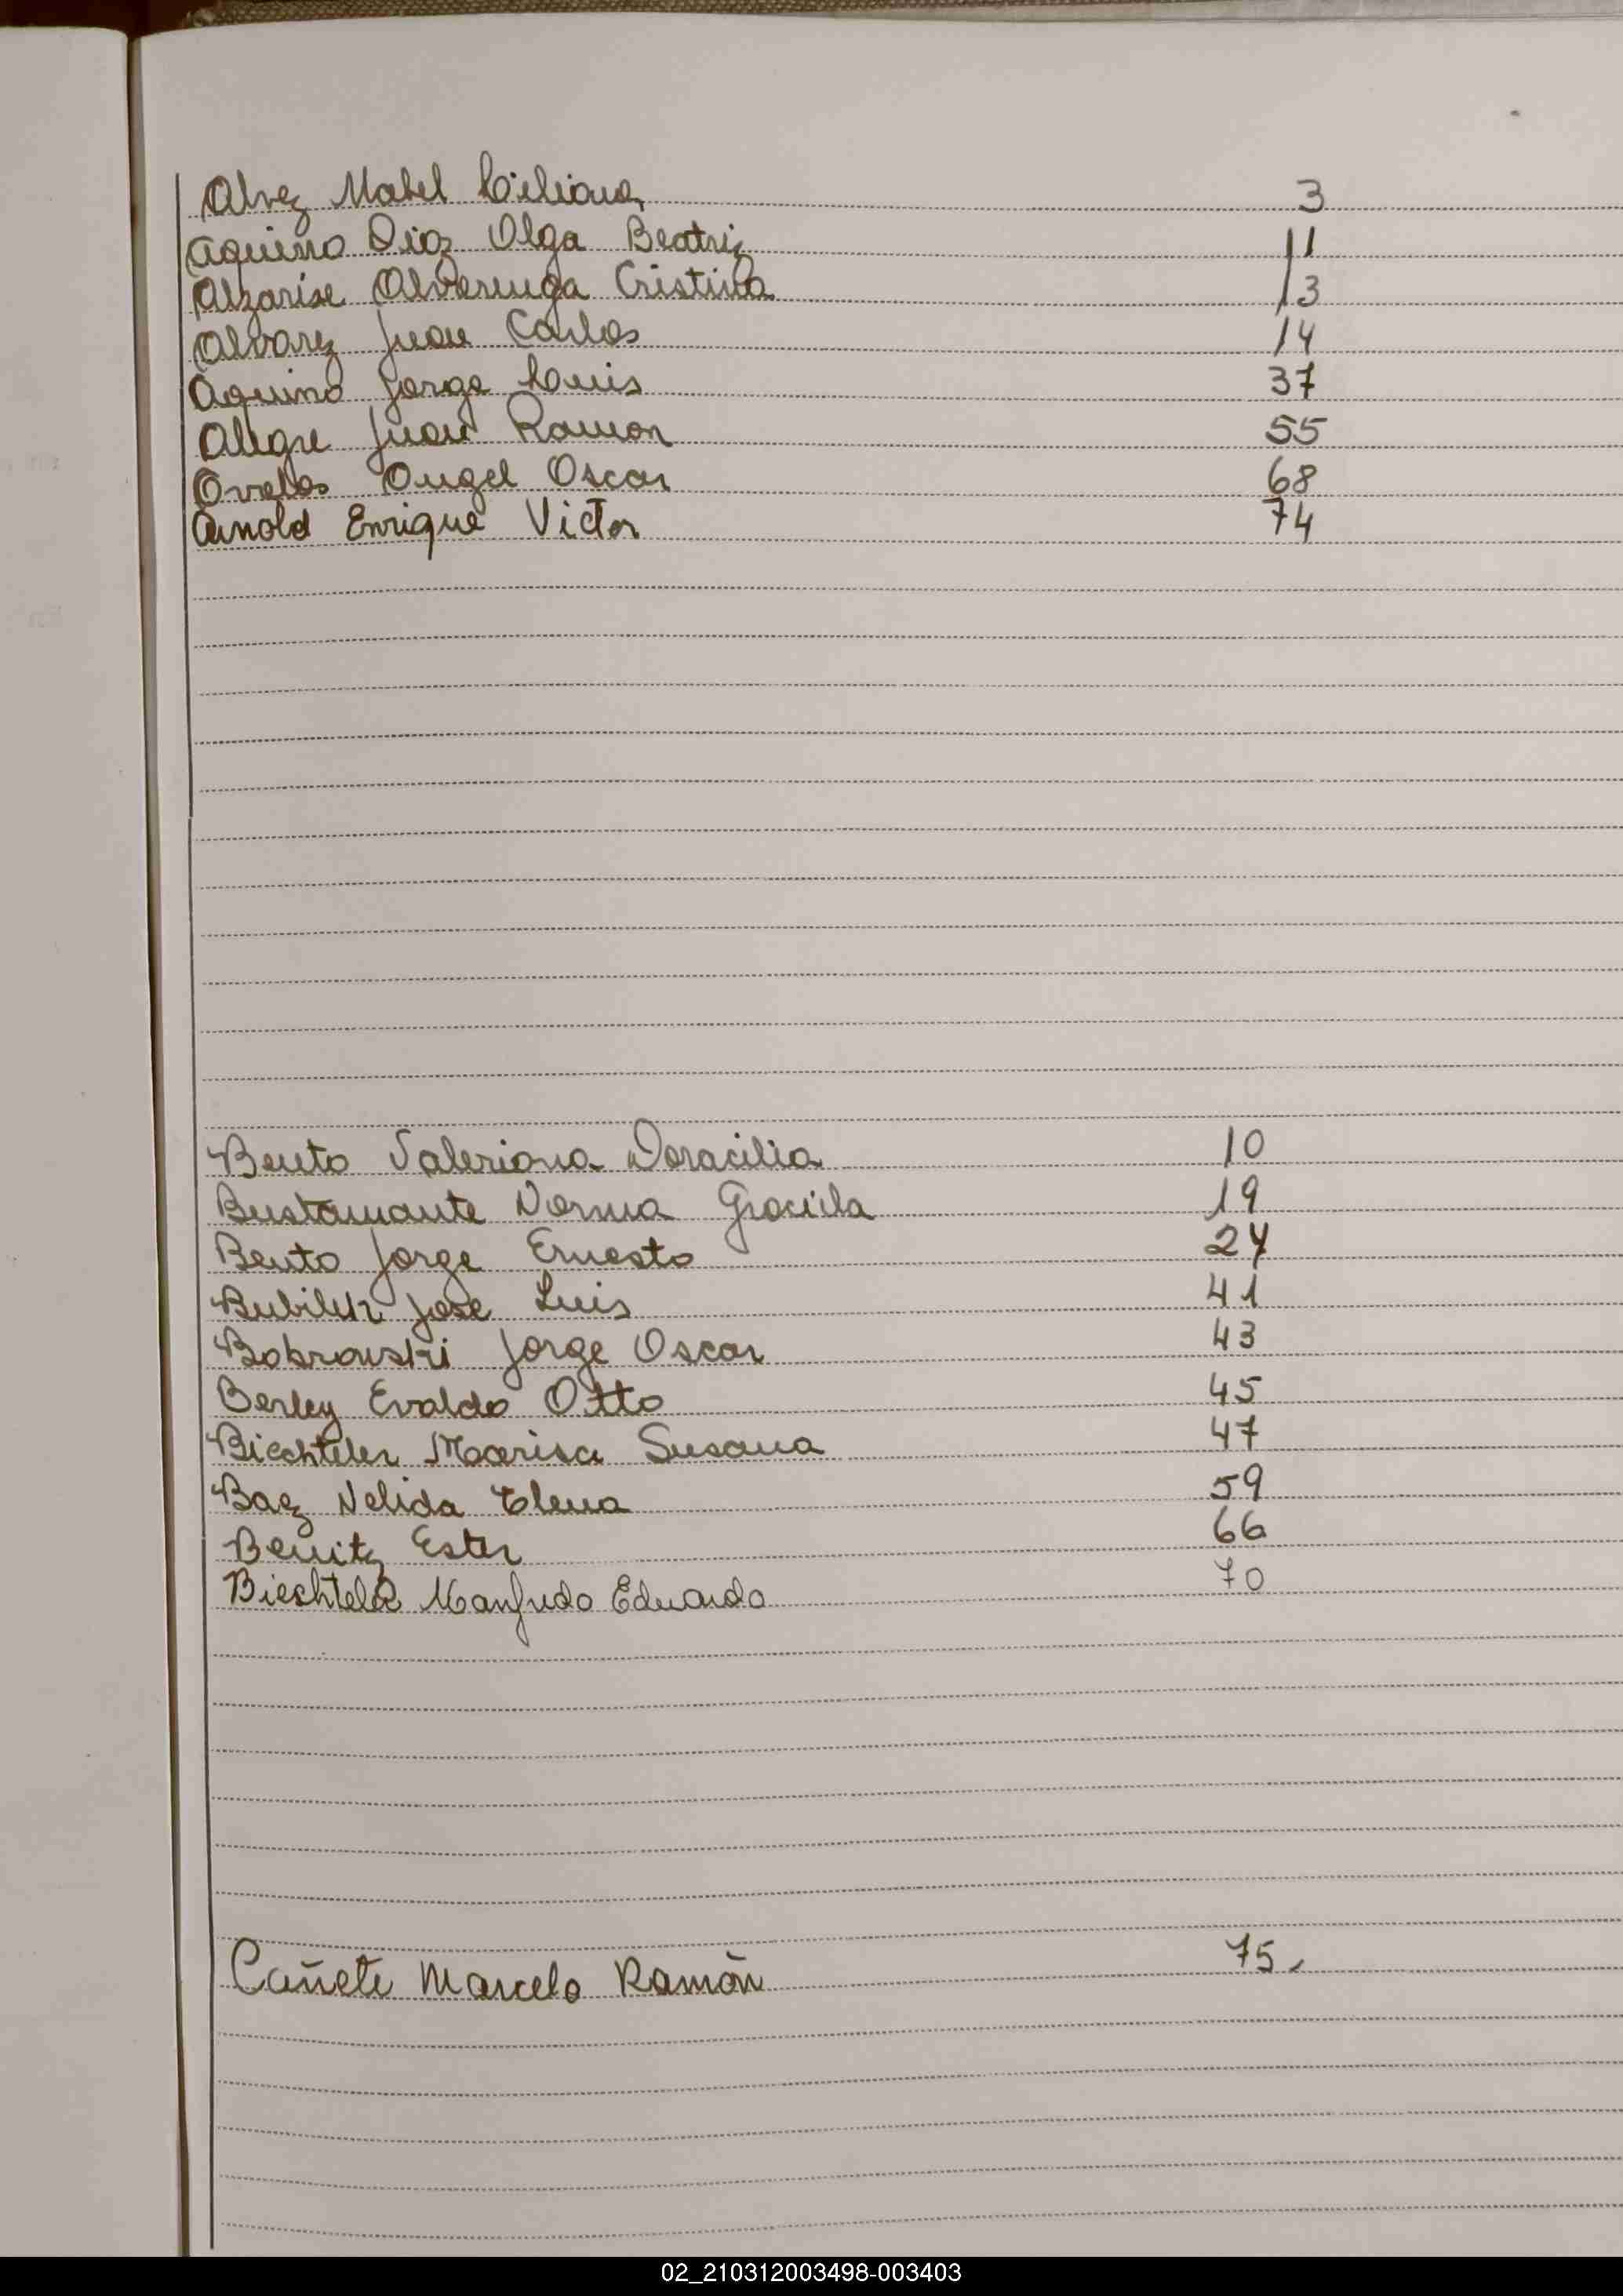 Alvez Mabel Liliana 3
Aquino Diaz Olga Beatriz 11
Alzarise Alvarenga Cristina 13
Alvarez Juan Carlos 14
Aquino Jorge Luis 37
Alegre Juan Ramon 55
Avalos Angel Oscar 68
Arnold Enrique Victor 74
Bento Valeriana Doracilia 10
Bustamante Norma Graciela 19
Bento Jorge Ernesto 24
Jose Luis 41
Bobrowski Jorge Oscar 43
Berley Evaldo Otto 45
Biechteler Marisa Susana 47
Baez Nelida Elena 59
Benitez Ester 66
Biechteler Manfredo Eduardo 70
Cañete Marcelo Ramón 75
02_210312003498-003403